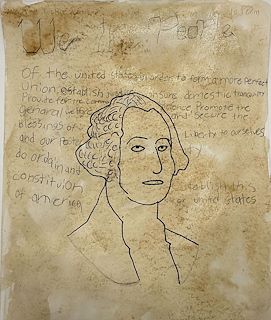 We The People
of the united states in order to form a more perfect
Union, establish justice insure domestic tranquility
Provide for the common defence, Promote the
General welfare and secure the
Blessings of Liberty to ourselves
and our
do ordain and establish this
constitution of united states
of america